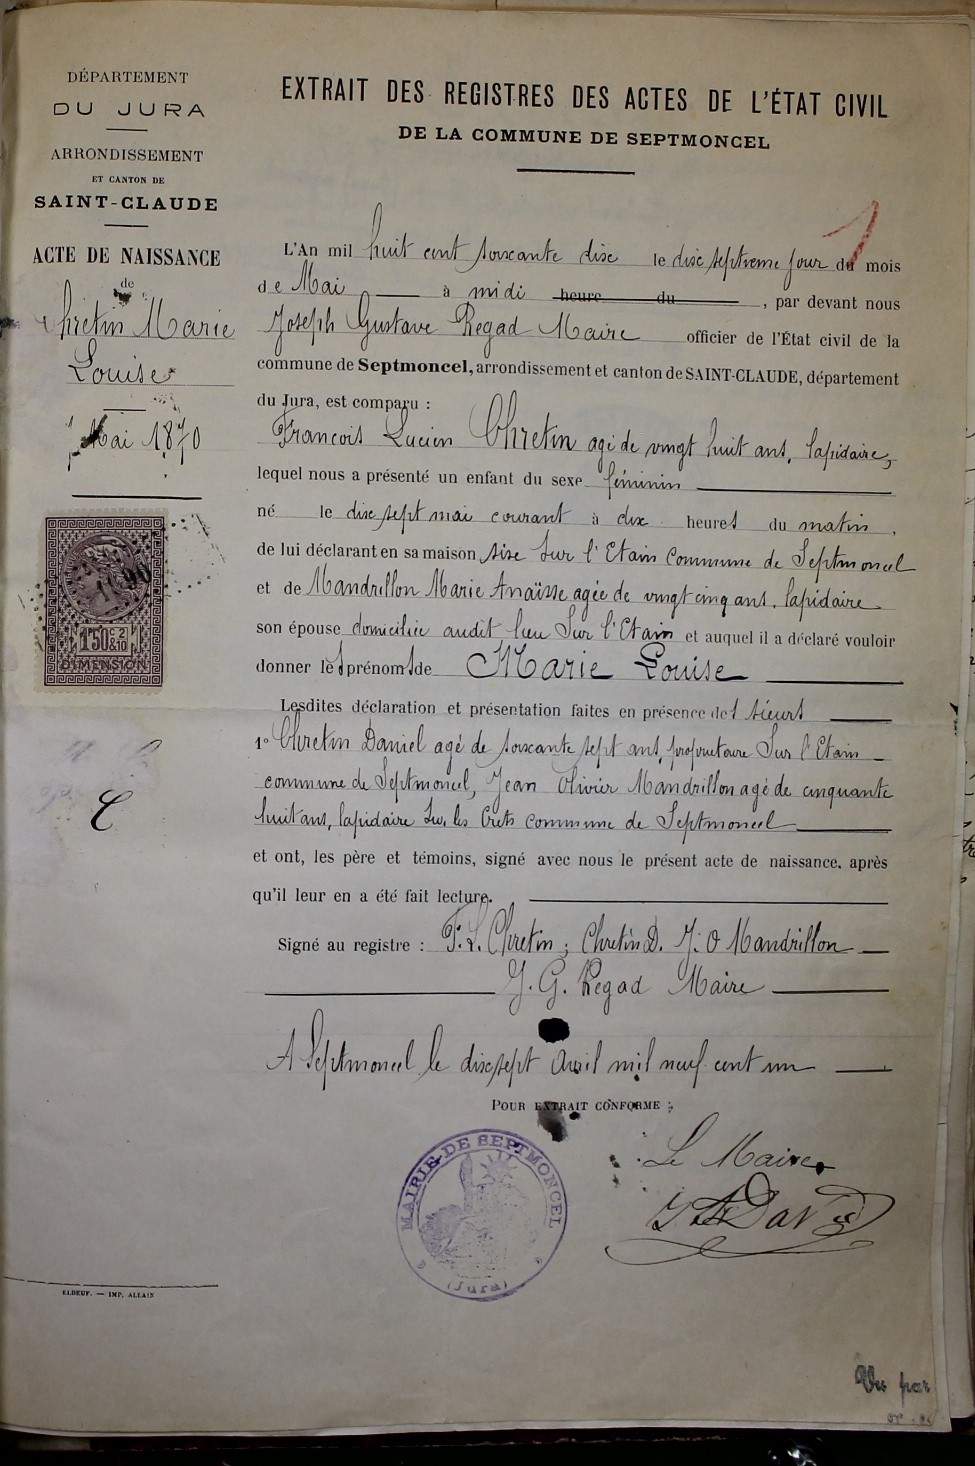 DÉPARTEMENT
DU JURA
ARRONDISSEMENT
ET CANTON DE
SAINT-CLAUDE
ACTE DE NAISSANCE
de
Chretin Marie
Louise
Mai 1870
1F50C 2 &10
DIMENSION
EXTRAIT DES REGISTRES DES ACTES DE L'ÉTAT CIVIL
DE LA COMMUNE DE SEPTMONCEL
1
L'An mil huit cent soixante dix le dix septieme jour du mois
de Mai à midi heure du , par devant nous
Joseph Gustave Regad Maire officier de l'État civil de la
commune de Septmoncel, arrondissement et canton de SAINT-CLAUDE, département
du Jura, est comparu :
François Lucien Chretin agé de vingt huit ans, lapidaire,
lequel nous a présenté un enfant du sexe féminin
né le dix sept mai courant à dix heures du matin,
de lui déclarant en sa maison sise Sur l'Etain commune de Septmoncel
et de Mandrillon Marie Anaïsse agée de vingt cinq ans, lapidaire
son épouse domiciliée audit lieu Sur l'Etain et auquel il a déclaré vouloir
donner les prénoms de Marie Louise
Lesdites déclaration et présentation faites en présence des sieurs
1º Chretin Daniel agé de soixante sept ans, proprietaire Sur l'Etain
commune de Septmoncel, Jean Olivier Mandrillon agé de cinquante
huit ans, lapidaire Sur les Crets commune de Septmoncel
et ont, les père et témoins, signé avec nous le présent acte de naissance, après
qu'il leur en a été fait lecture.
Signé au registre : F. L. Chretin ; Chretin D. J. O Mandrillon
J. G. Regad Maire
A Septmoncel le dix sept avril mil neuf cent un
POUR EXTRAIT CONFORME :
Le Maire
MAIRIE DE SEPTMONCEL
(Jura)
ELBEUF. — IMP. ALLAIN
Vu par